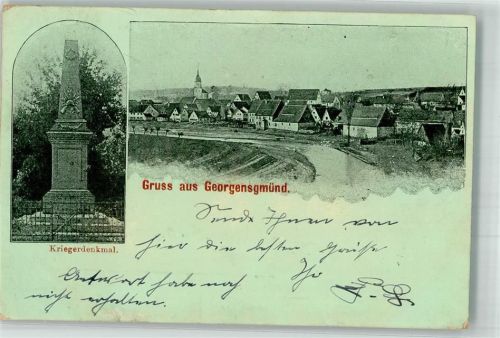 Gruss aus Georgensgmünd.
Kriegerdenkmal.
Sende Ihnen von
hier die besten Grüße
Ihr
Antwort habe noch
nicht erhalten.